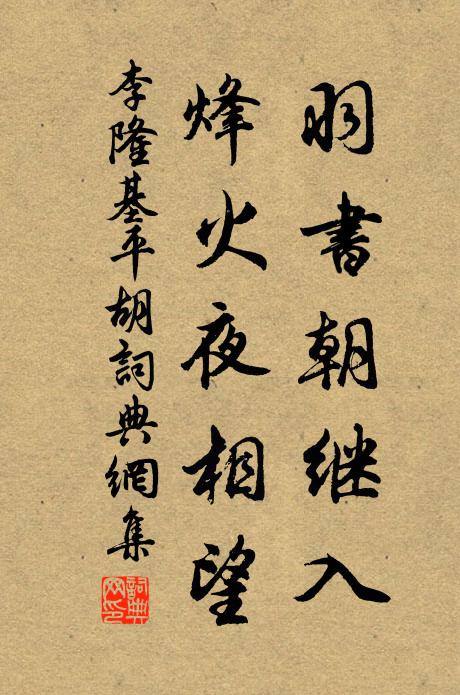 羽書朝继入
烽火夜相望
李隆基平胡詞典網集
詞典网印